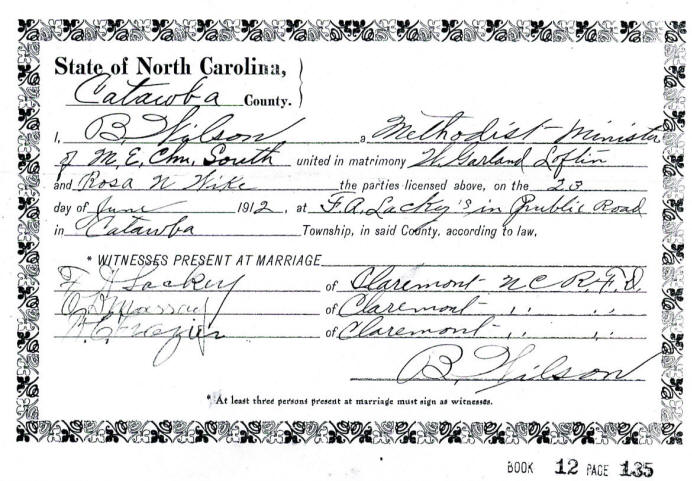 State of North Carolina,
Catawba County.
I, B. Wilson a Methodist Minister
of M. E. Chu. South united in matrimony W. Garland Loftin
and Rosa N Wike the parties licensed above, on the 23
day of June 1912, at F. A. Lackey's in Public Road
in Catawba Township, in said County, according to law.
* WITNESSES PRESENT AT MARRIAGE
F A Lackey of Claremont N C R.F.D.
of Claremont " "
Frazier of Claremont " "
B. Wilson
* At least three persons present at marriage must sign as witnesses.
BOOK 12 PAGE 135